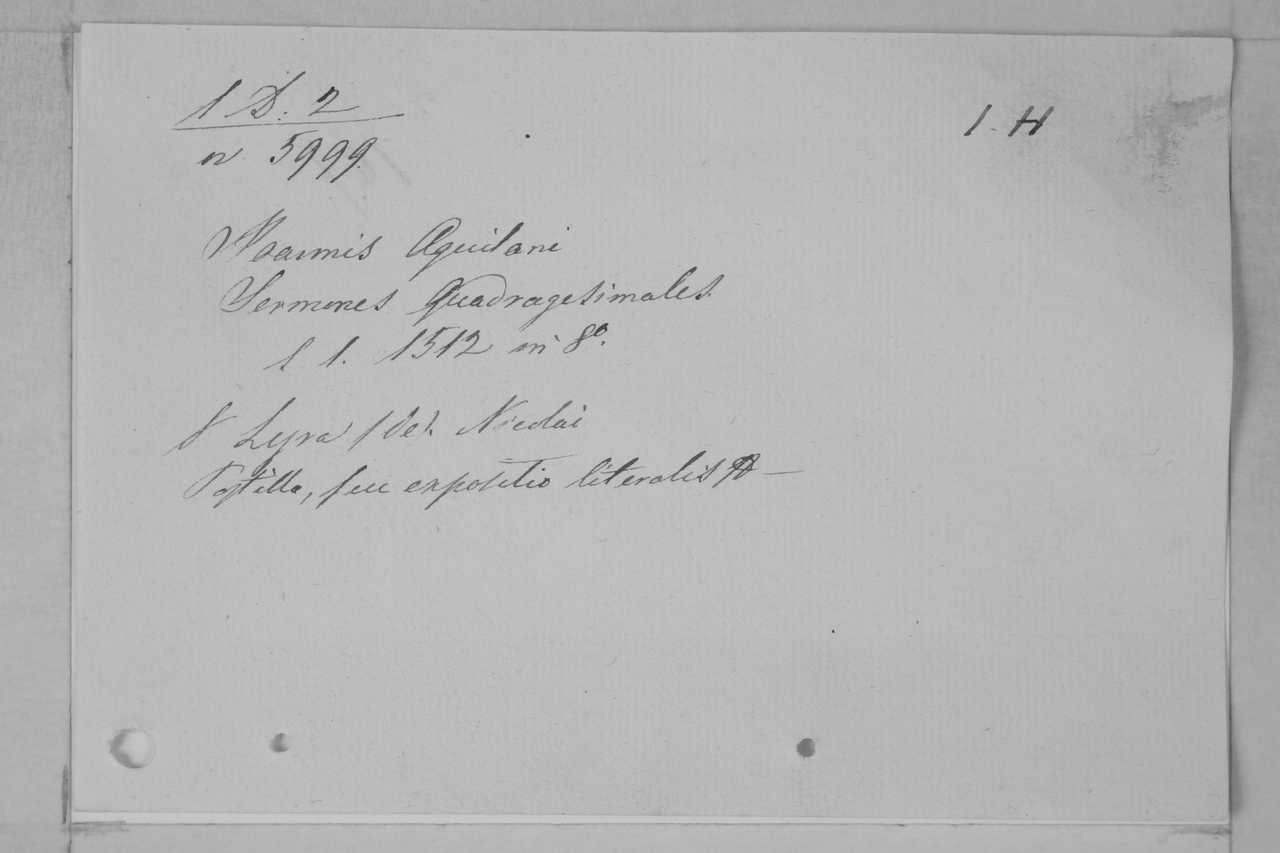 1 D. 2
n 5999.
1. H
Joannis Aquilani
Sermones Quadragesimales.
s l. 1512 in 8º.
V Lyra /de/. Nicolai
Postilla, seu expositio literalis